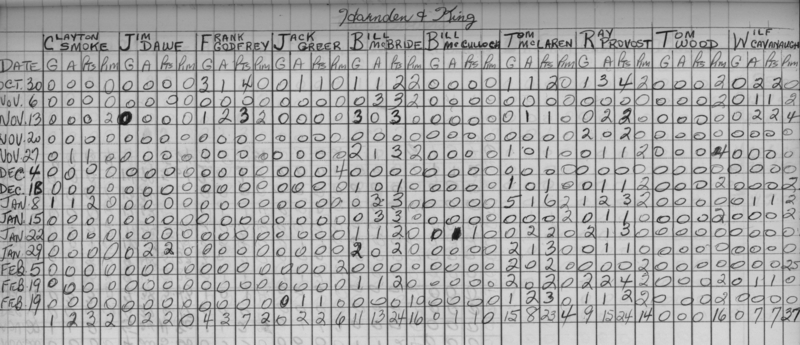 Harnden & King
CLAYTON SMOKE JIM DAWE FRANK GODFREY JACK GREER BILL McBRIDE BILL McCULLOCH TOM McLAREN RAY PROVOST TOM WOOD WILF CAVANAUGH
DATE G A Pts Pim G A Pts Pim G A Pts Pim G A Pts Pim G A Pts Pim G A Pts Pim G A Pts Pim G A Pts Pim G A Pts Pim G A Pts Pim
OCT. 30 0 0 0 0 0 0 0 0 3 1 4 0 0 1 1 0 1 1 2 2 0 0 0 0 1 1 2 0 1 3 4 2 0 0 0 2 0 2 2 0
NOV. 6 0 0 0 0 0 0 0 0 0 0 0 0 0 0 0 0 0 3 3 2 0 0 0 0 0 0 0 0 0 0 0 0 0 0 0 2 0 1 1 2
NOV. 13 0 0 0 2 0 0 0 0 1 2 3 2 0 0 0 0 3 0 3 0 0 0 0 0 0 1 1 0 0 2 2 0 0 0 0 0 0 2 2 4
NOV. 20 0 0 0 0 0 0 0 0 0 0 0 0 0 0 0 0 0 0 0 0 0 0 0 0 0 0 0 0 2 0 2 0 0 0 0 0 0 0 0 0
NOV. 27 0 1 1 0 0 0 0 0 0 0 0 0 0 0 0 0 2 1 3 2 0 0 0 0 1 0 1 0 0 1 1 2 0 0 0 4 0 0 0 0
DEC. 4 0 0 0 0 0 0 0 0 0 0 0 0 0 0 0 4 0 0 0 0 0 0 0 0 0 0 0 0 0 0 0 0 0 0 0 0 0 0 0 0
DEC. 18 0 0 0 0 0 0 0 0 0 0 0 0 0 0 0 0 1 0 1 0 0 0 0 0 1 0 1 0 0 1 1 2 0 0 0 0 0 0 0 2
JAN. 8 1 1 2 0 0 0 0 0 0 0 0 0 0 0 0 0 0 3 3 0 0 0 0 0 5 1 6 2 1 2 3 2 0 0 0 0 0 1 1 2
JAN. 15 0 0 0 0 0 0 0 0 0 0 0 0 0 0 0 0 0 3 3 0 0 0 0 0 0 0 0 2 0 1 1 0 0 0 0 2 0 0 0 0
JAN. 22 0 0 0 0 0 0 0 0 0 0 0 0 0 0 0 0 1 1 2 0 0 1 1 0 0 2 2 0 2 1 3 0 0 0 0 0 0 0 0 0
JAN. 29 0 0 0 0 0 2 2 0 0 0 0 0 0 0 0 0 2 0 2 0 0 0 0 0 2 1 3 0 0 1 1 0 0 0 0 0 0 0 0 0
FEB. 5 0 0 0 0 0 0 0 0 0 0 0 0 0 0 0 2 0 0 0 0 0 0 0 0 2 0 2 0 0 0 0 2 0 0 0 0 0 0 0 25
FEB. 19 0 0 0 0 0 0 0 0 0 0 0 0 0 0 0 0 1 1 2 0 0 0 0 0 2 0 2 0 2 2 4 2 0 0 0 2 0 1 1 0
FEB. 19 0 0 0 0 0 0 0 0 0 0 0 0 0 1 1 0 0 0 0 10 0 0 0 0 1 2 3 0 1 1 2 2 0 0 0 2 0 0 0 0
1 2 3 2 0 2 2 0 4 3 7 2 0 2 2 6 11 13 24 16 0 1 1 0 15 8 23 4 9 15 24 14 0 0 0 16 0 7 7 27